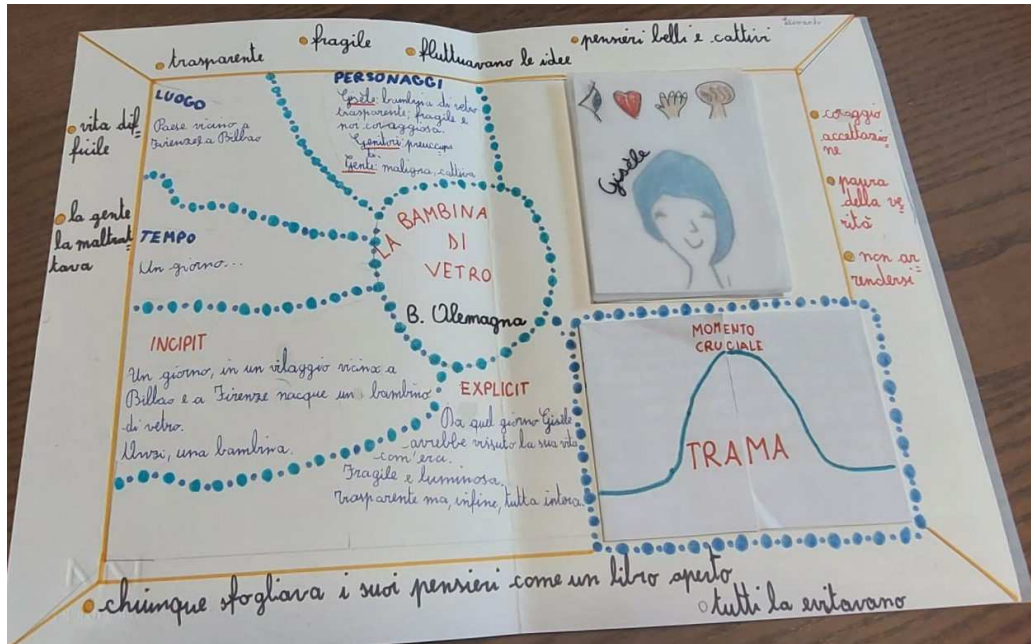 Leonardo
trasparente
fragile
fluttuavano le idee
pensieri belli e cattivi
vita dif=
ficile
la gente
la maltrat
tava
LUOGO
Paese vicino a
Firenze/a Bilbao
PERSONAGGI
Gisèle: bambina di vetro
trasparente, fragile e
poi coraggiosa.
Genitori: preoccupa
ti.
Gente: maligna, cattiva
TEMPO
Un giorno...
LA BAMBINA
DI
VETRO
B. Alemagna
INCIPIT
Un giorno, in un villaggio vicino a
Bilbao e a Firenze nacque un bambino
di vetro.
Anzi, una bambina.
EXPLICIT
Da quel giorno Gisèle
avrebbe vissuto la sua vita
com'era.
Fragile e luminosa.
trasparente ma, infine, tutta intera.
Gisèle
coraggio
accettazio=
ne
paura
della ve=
rità
non ar=
rendersi
MOMENTO
CRUCIALE
TRAMA
chiunque sfogliava i suoi pensieri come un libro aperto
tutti la evitavano